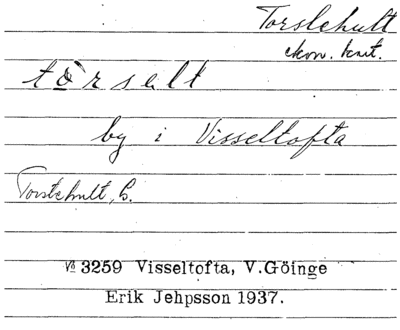 Torslehult
ekon. kart.
tòrselt
by i Visseltofta
Torstehult, G.
№ 3259 Visseltofta, V.Göinge
Erik Jehpsson 1937.